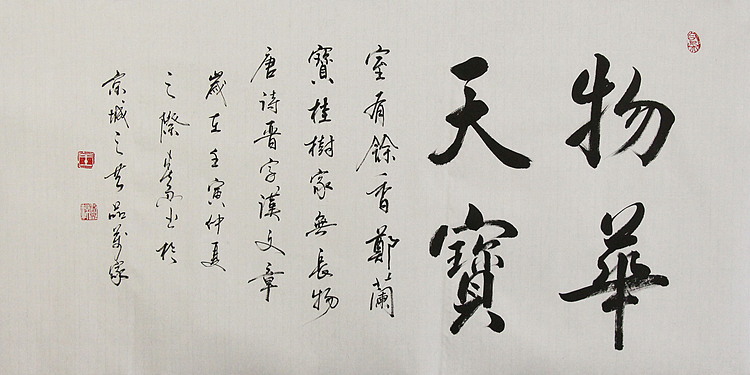 物華
天寶
室有餘香鄭蘭
寶桂樹家無長物
唐詩晉字漢文章
歲在壬寅仲夏
之際书於
京城之品萬家